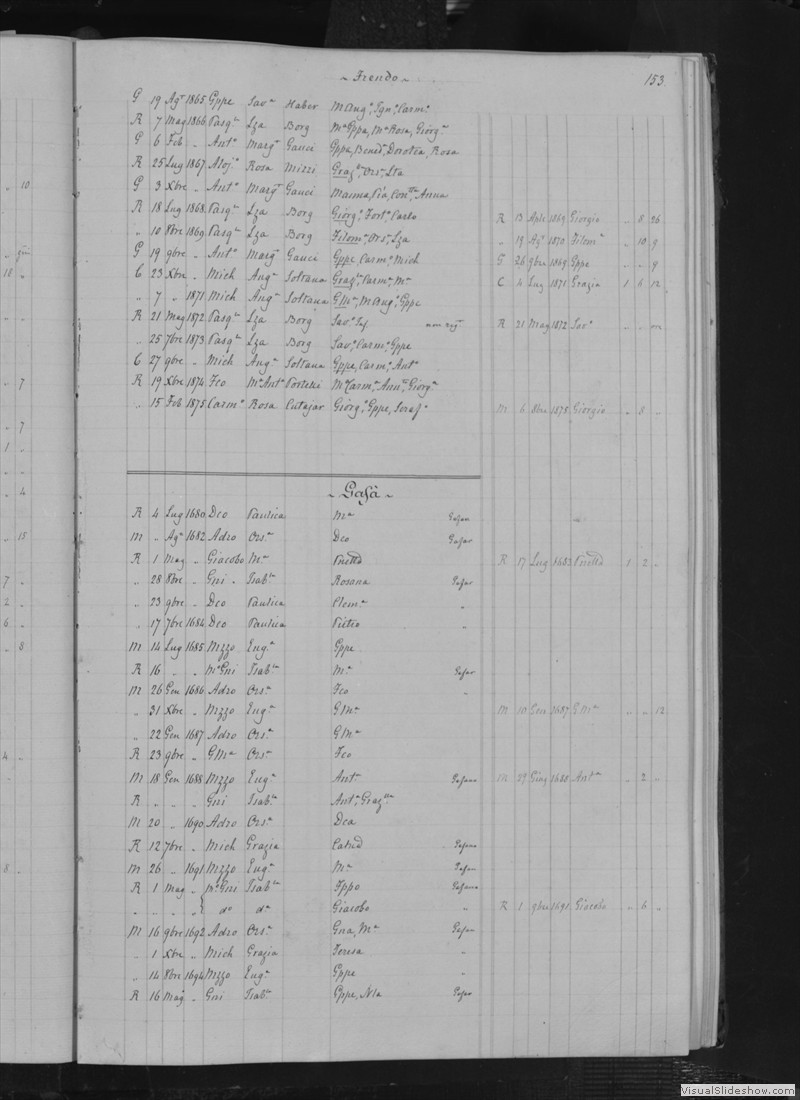 ~ Frendo ~ 153
G 19 Agt 1865 Gppe Sava Haber M Anga, Igna, Carma
R 7 Mag 1866 Pasqle Lza Borg Ma Gppa, Ma Rosa, Giorga
G 6 Feb „ Anto Margt Gauci Gppa, Bened, Dorotea, Rosa
R 25 Lug 1867 Aloja Rosa Mizzi Graza, Orsa, Lza
G 3 Xbre „ Anto Margt Gauci Maria, Pia, Anna
R 18 Lug 1868 Pasqle Lza Borg Giorgo, Forto, Carlo R 13 Aple 1869 Giorgio „ 8 26
„ 10 8bre 1869 Pasqle Lza Borg Filoma, Orsa, Lza „ 19 Agt 1870 Filoma „ 10 9
G 19 9bre „ Anto Margt Gauci Gppe, Carmo, Mich G 26 9bre 1869 Gppe „ „ 9
C 23 Xbre „ Mich Anga Soltana Graza, Carma, Ma C 4 Lug 1871 Grazia 1 6 12
„ 7 „ 1871 Mich Anga Soltana G Ma, M Ango, Gppe
R 21 Mag 1872 Pasqle Lza Borg Savo R 21 Mag 1872 Savo „ „
„ 25 7bre 1873 Pasqle Lza Borg Savo, Carmo, Gppe
C 27 9bre „ Mich Anga Soltana Gppe, Carmo, Anto
R 19 Xbre 1874 Fco Ma Anta Portelli Ma Carma, Anna, Giorga
„ 15 Feb 1875 Carmo Rosa Cutajar Giorgo, Gppe, Seraf M 6 8bre 1875 Giorgio „ 8 „
~ Gafà ~
R 4 Lug 1680 Dco Paulica Ma Gafan
M „ Agt 1682 Adro Orsa Dco Gafar
R 1 Mag „ Giacobo Ma R 17 Lug 1683 1 2 „
„ 28 8bre „ Gni Isabla Rosana Gafar
„ 23 9bre „ Dco Paulica Clema „
„ 17 7bre 1684 Dco Paulica Pietro „
M 14 Lug 1685 Mzzo Euga Gppe
R 16 „ „ Mo Gni Isabla Ma Gafar
M 26 Gen 1686 Adro Orsa Fco „
„ 31 Xbre „ Mzzo Euga G Ma M 10 Gen 1687 G Ma „ „ 12
„ 22 Gen 1687 Adro Orsa G Ma
R 23 9bre „ G Ma Orsa Fco
M 18 Gen 1688 Mzzo Euga Anta M 29 Giug 1688 Anta „ 2 „
R „ „ „ Gni Isabla Anta, Grazlla
M 20 „ 1690 Adro Orsa Dca
R 12 7bre „ Mich Grazia Catnd
M 26 „ 1691 Mzzo Euga Ma Gafan
R 1 Mag „ Mo Gni Isabla Fppo
„ „ „ „ do do Giacobo „ R 1 9bre 1691 Giacobo „ 6 „
M 16 9bre 1692 Adro Orsa Gna, Ma Gafan
„ 1 Xbre „ Mich Grazia Teresa „
„ 14 8bre 1694 Mzzo Euga Gppe „
R 16 Mag „ Gni Isabla Gppe, Nla Gafar
VisualSlideshow.com